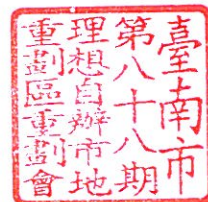 臺南市
第八十八期
理想自辦市地
重劃區重劃會